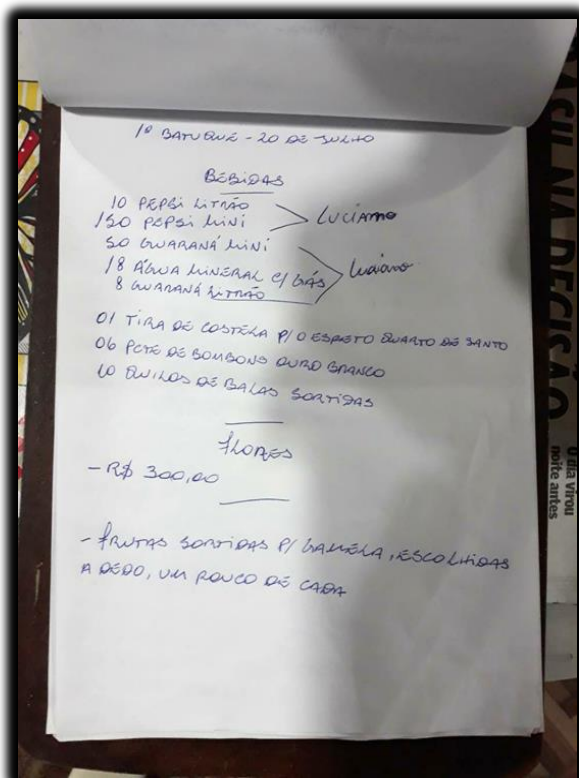 1º BATUQUE - 20 DE JULHO
BEBIDAS
10 PEPSI LITRÃO
150 PEPSI MINI
LUCIANO
50 GUARANÁ MINI
18 ÁGUA MINERAL C/ GÁS
Luciano
8 GUARANÁ LITRÃO
01 TIRA DE COSTELA P/ O ESPETO QUARTO DE SANTO
06 PCTE DE BOMBONS OURO BRANCO
10 QUILOS DE BALAS SORTIDAS
FLORES
- R$ 300,00
- FRUTAS SORTIDAS P/ GAMELA, ESCOLHIDAS
A DEDO, UM POUCO DE CADA
ASIL NA DECISÃO
O dia virou
noite antes